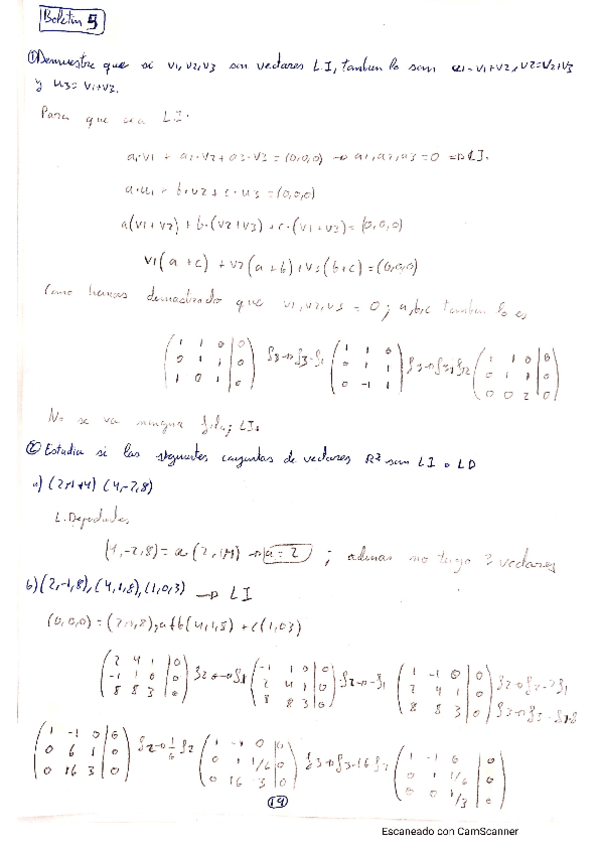 Boletín 5
① Demuestra que si v1, v2, v3 son vectores LI, tambien lo son u1=v1+v2, v2=v2+v3
y u3=v1+v3.
Para que sea LI.
a1·v1 + a2·v2 + a3·v3 = (0,0,0) → a1, a2, a3 = 0 ⇒ LI.
a·u1 + b·v2 + c·u3 = (0,0,0)
a(v1+v2) + b·(v2+v3) + c·(v1+v3) = (0,0,0)
v1(a+c) + v2(a+b) + v3(b+c) = (0,0,0)
Como hemos demostrado que v1, v2, v3 = 0; a, b, c tambien lo es
(1 1 0 | 0) (1 1 0) (1 1 0 | 0)
(0 1 1 | 0) f3→f3-f1 (0 1 1) f3→f3+f2 (0 1 1 | 0)
(1 0 1 | 0) (0 -1 1) (0 0 2 | 0)
No se va ninguna fila; LI.
② Estudia si los siguientes conjuntos de vectores R² son LI o LD
a) (4,-2,8)
L. Dependientes
(4,-2,8) = a → a=2 ; ademas no tengo 3 vectores
b) (2,-1,8), (4,1,8), (1,0,3) → LI
(0,0,0) = a+b + c(1,0,3)
(2 4 1 | 0) (-1 1 0 | 0) (1 -1 0 | 0) f2→f2-2f1
(-1 1 0 | 0) f2↔f1 (2 4 1 | 0) (2 4 1 | 0)
(8 8 3 | 0) (8 8 3 | 0) (8 8 3 | 0)
(1 -1 0 | 0) (1 -1 0 | 0) (1 -1 0 | 0)
(0 6 1 | 0) f2→1/6 f2 (0 1 1/6 | 0) f3→f3-16 f2 (0 1 1/6 | 0)
(0 16 3 | 0) (0 16 3 | 0) (0 0 1/3 | 0)
19
Escaneado con CamScanner